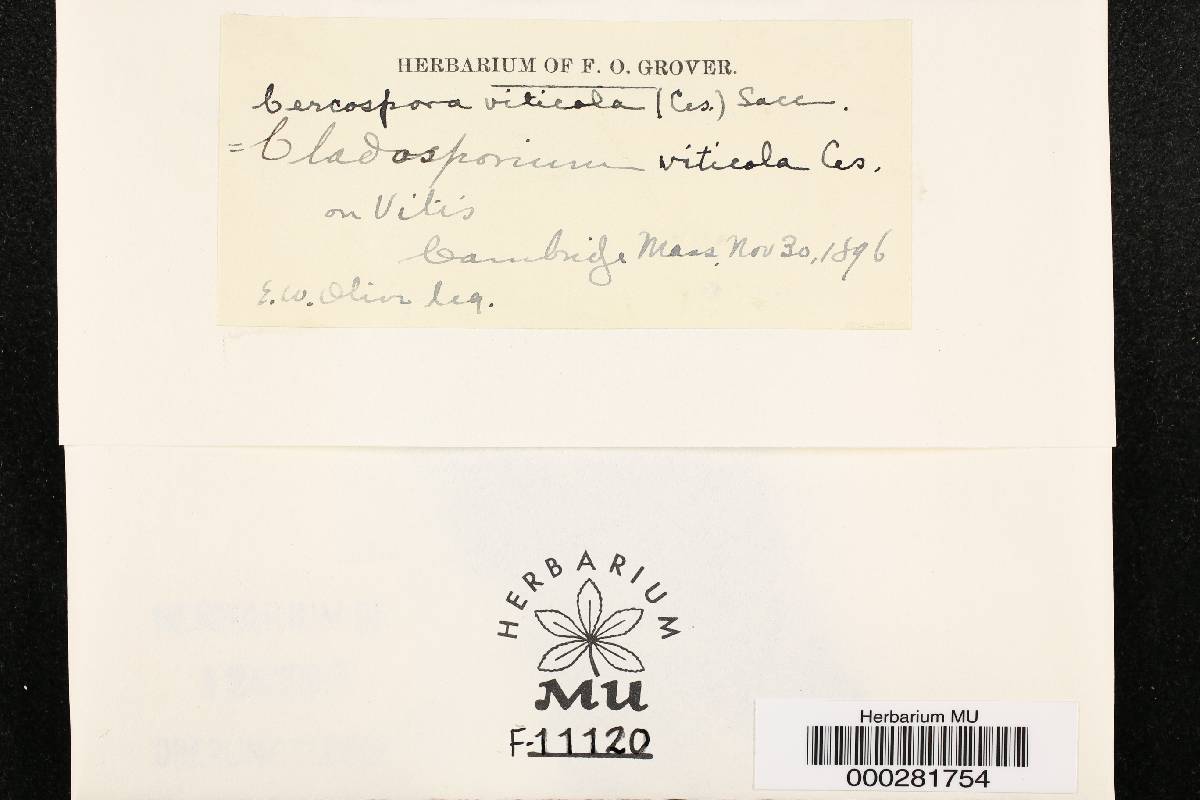 HERBARIUM OF F. O. GROVER.
Cercospora viticola (Ces.) Sacc.
= Cladosporium viticola Ces.
on Vitis
Cambridge Mass. Nov 30, 1896
E. W. Olive leg.
HERBARIUM
MU
F-11120
Herbarium MU
000281754